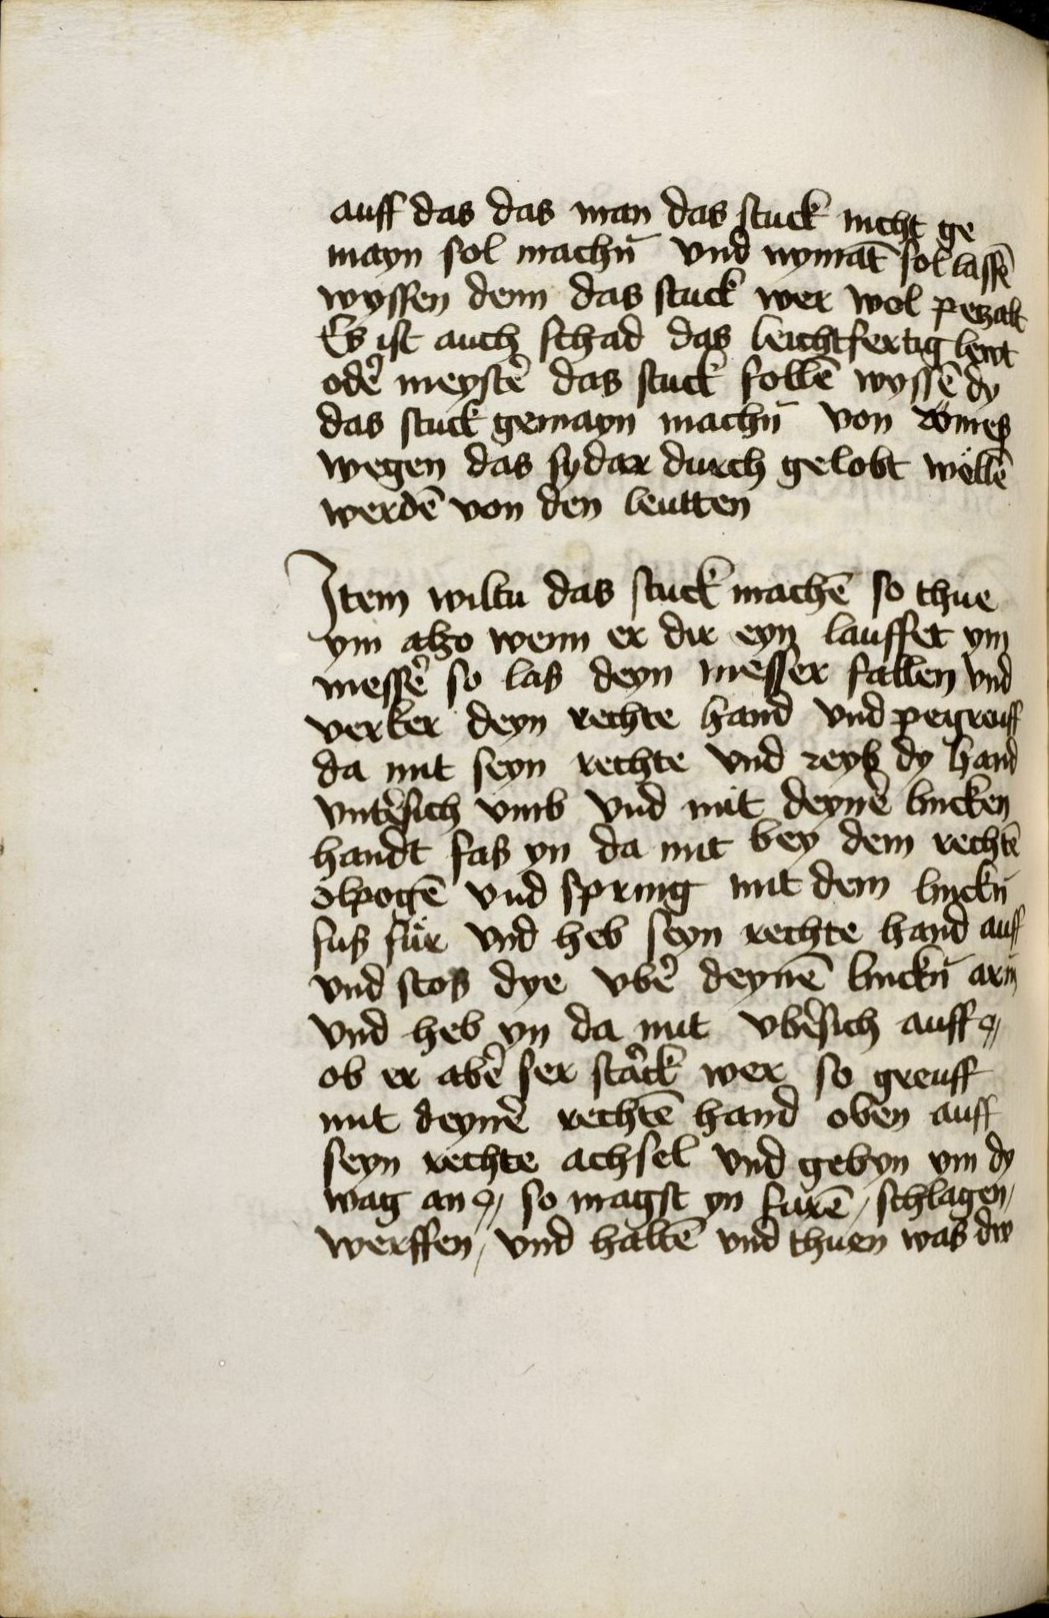 auff das das man das stuck nicht ge
mayn sol machn̄ vnd nymāt sol lassē
wyssen denn das stuck wer wol peczalt
Es ist auch schad das leichtfertig lewt
odeᷣ meysteᷣ das stuck sollē wyssē dy
das stuck gemayn machn̄ von
wegen das sy dar durch gelobt wöllē
werdē von den leutten
Item wiltu das stuck machē so thue
ym also wenn er dir eyn lauffet ym
messeᷣ so las deyn messer fallen vnd
verker deyn rechte hand vnd pegreuff
da mit seyn rechte vnd reyb dy hand
vnteᷣsich vmb vnd mit deyneᷣ lincken
handt fas yn da mit bey dem rechtē
olpogē vnd spring mit dem linckn̄
fus für vnd heb seyn rechte hand auff
vnd stos dye vbeᷣ deynē linckn̄ arm̄
vnd heb yn da mit vbeᷣsich auff
ob er abeᷣ ser starck wer so greuff
mit deyneᷣ rechtē hand oben auff
seyn rechte achsel vnd gebyn ym dy
wag an so magst yn fürē / schlagen /
werffen / vnd haltē vnd thuen was dw